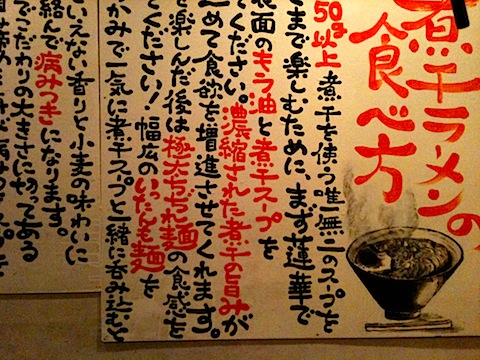 煮干ラーメンの
食べ方
50g以上煮干を使う唯一無二のスープを
まで楽しむために、まず蓮華で
表面のもう油と煮干スープを
てください。濃縮された煮干の旨みが
めて食欲を増進させてくれます。
を楽しんだ後は極太ちぢれ麺の食感を
てください！幅広のいったん麺を
かみで一気に煮干スープと一緒に呑み込むと
いえない香りと小麦の味わいに
絡んで病みつきになります。
でこだわりの大きさに切ってある